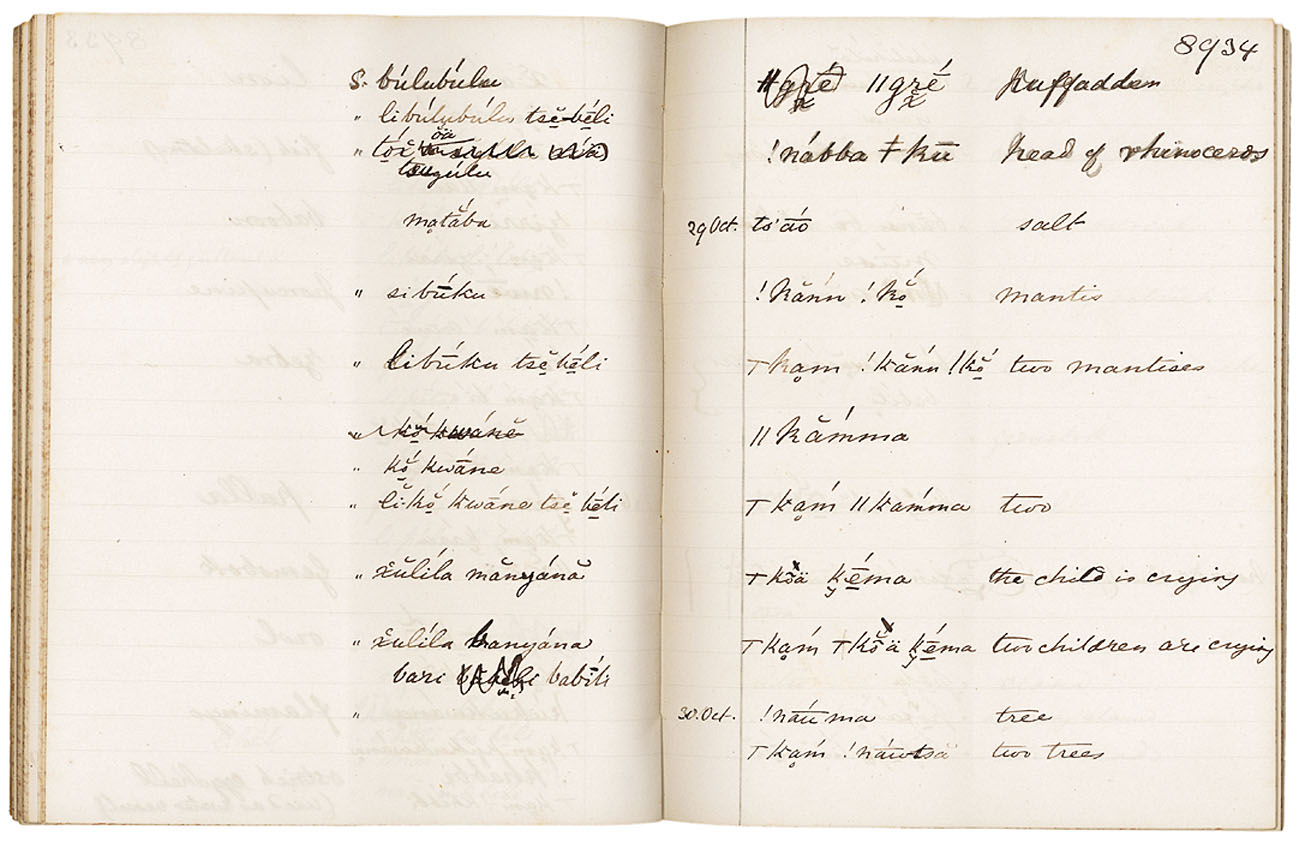 S. búlubúlu
" libúlubúlu tsĕ béli
" tóž
öä
tsugúlu
matăba
" sibūku
" libūku tsĕ béli
" kŏ́ kwáné
" kŏ́ kwáne
" li-kŏ́ kwáne tsĕ béli
" žŭlíla mănyánă
" žulíla banyána
bari babíli
"
8934
ǁgx̱ré Puffadder
!nábba ǂkū head of rhinoceros
29 Oct. ts'āó salt
!kănn !kŏ́ mantis
ǂkam !kănn !kŏ́ two mantises
ǁkắmma
ǂkaḿ ǁkámma two
ǂkŏ̃ä kéma the child is crying
ǂkaḿ ǂkŏ̃ä kéma two children are crying
30. Oct. !nāúma tree
ǂkaḿ !náwtsä two trees